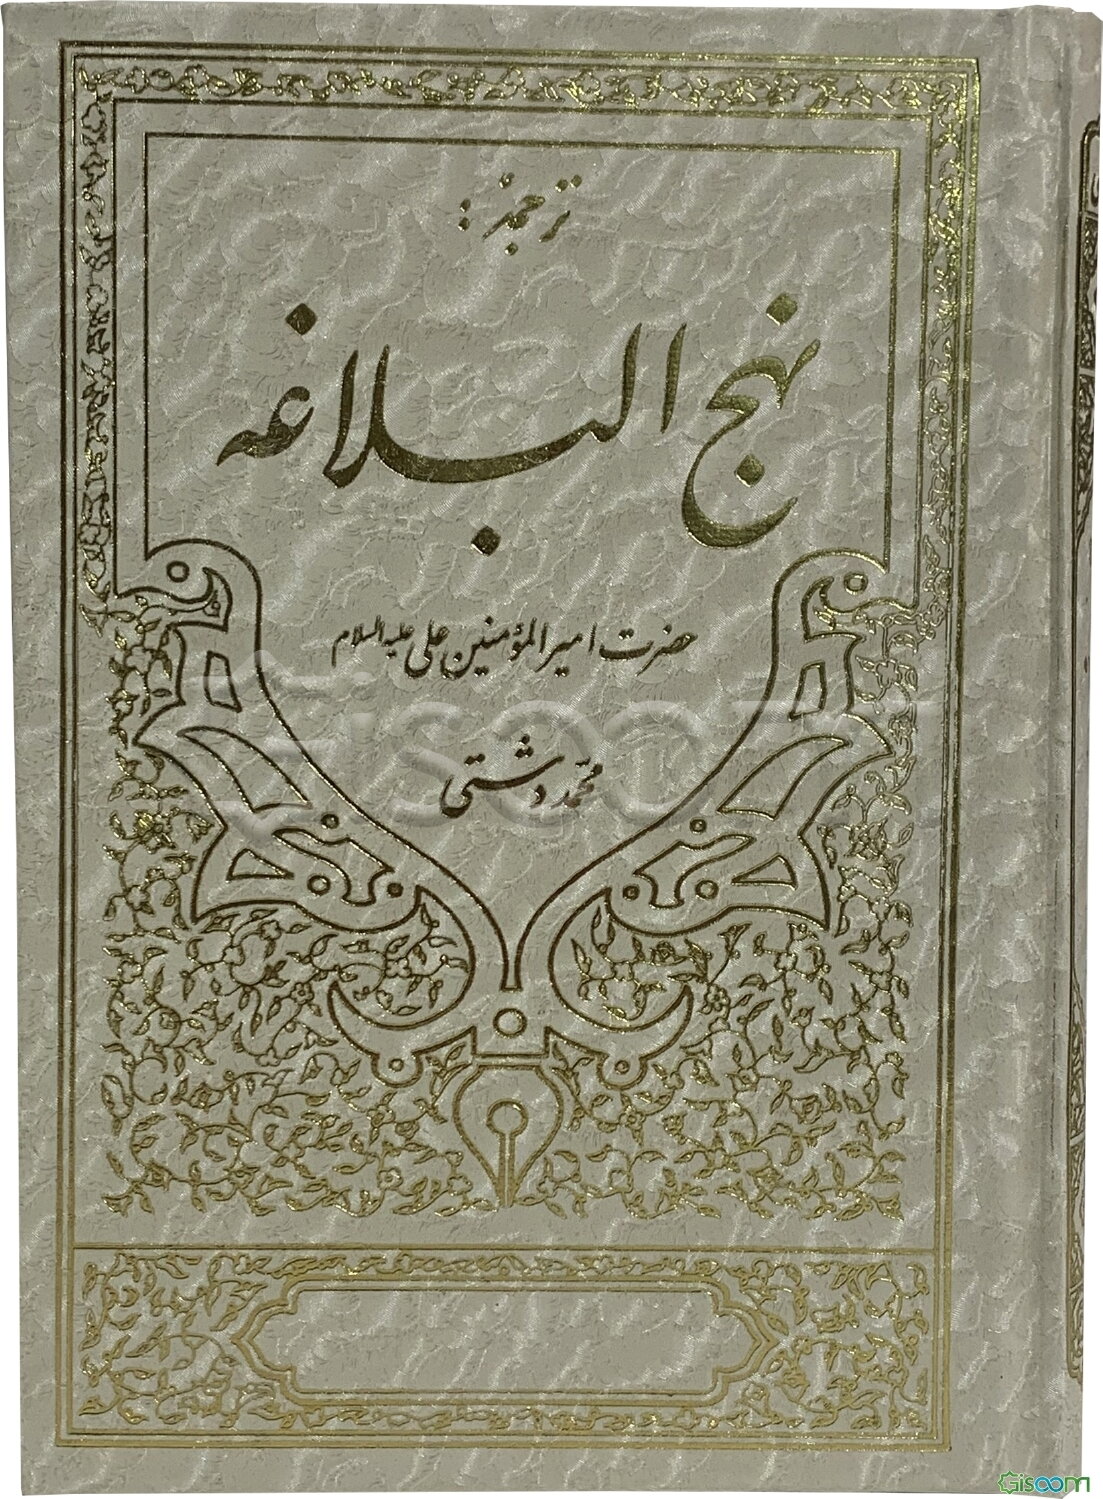 ترجمهٔ:
نهج البلاغه
حضرت امیرالمؤمنین علی علیه‌السلام
محمد دشتی
Gisoom
Gisoom